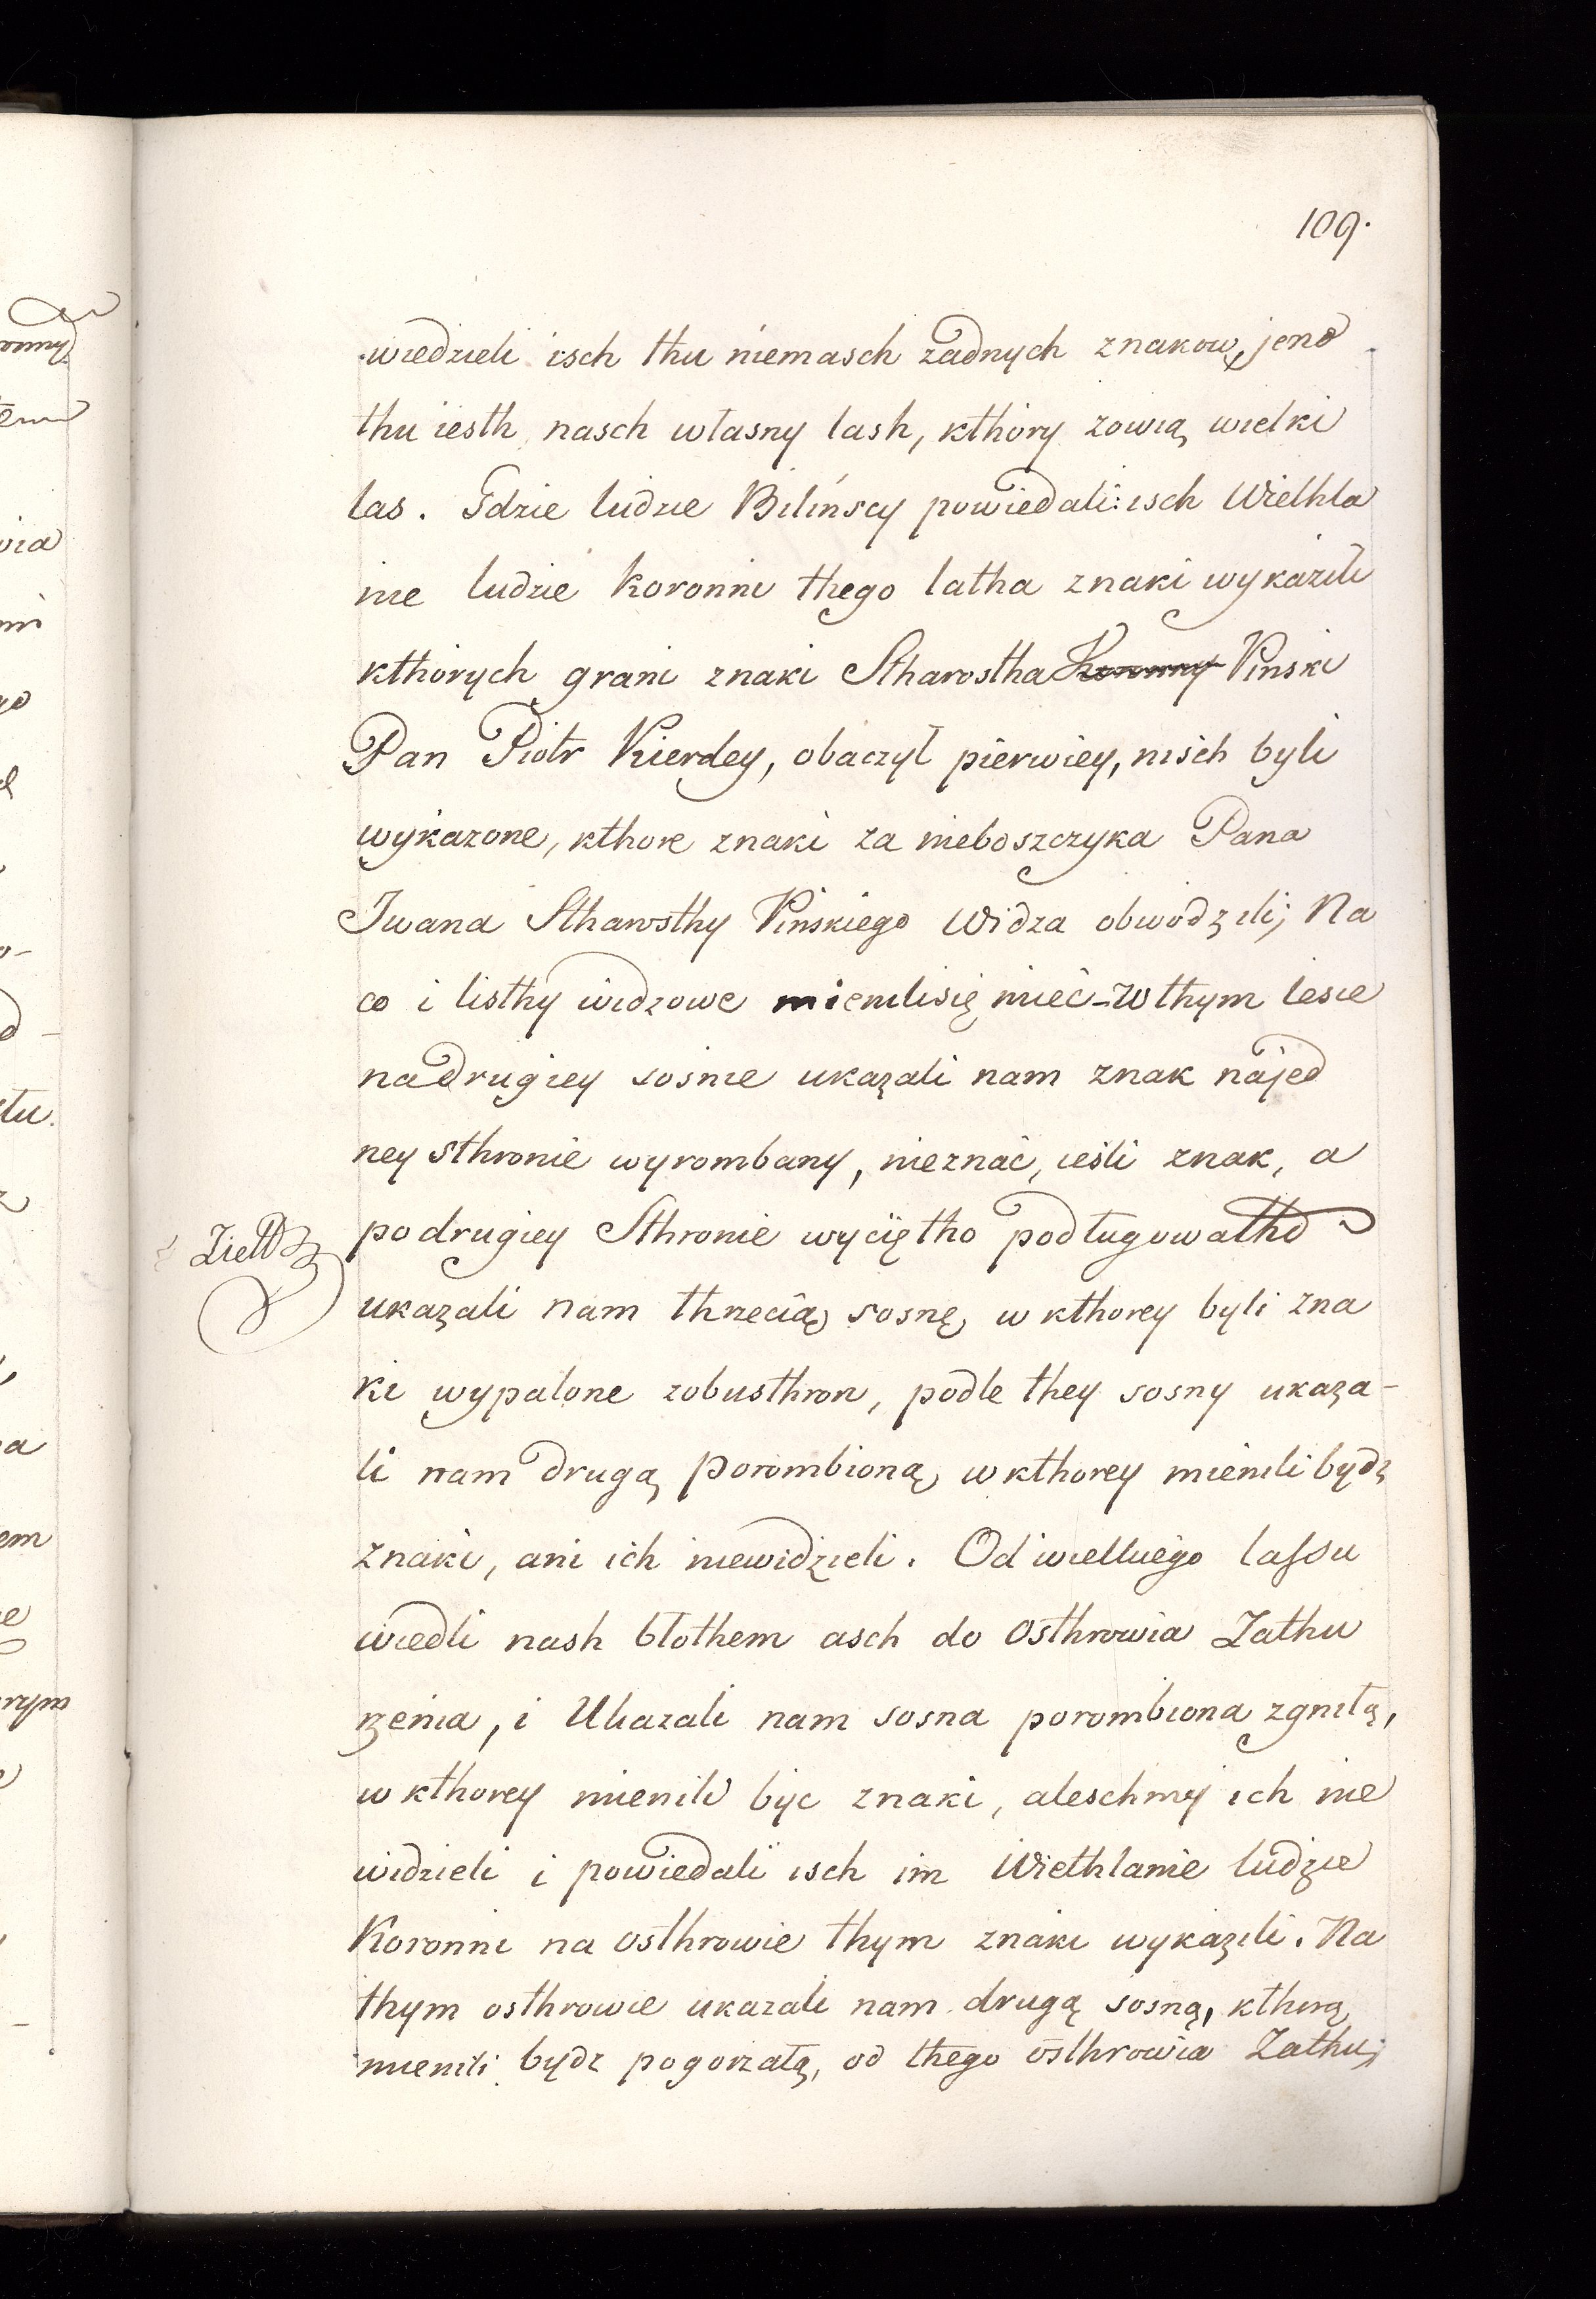 109.
wiedzieli isch thu niemasch żadnych znakow, jeno
thu iesth nasch własny lash, kthory zowią wielki
las. Gdzie ludzie Bilińscy powiedali: isch Wielhla
nie ludzie Koronni thego latha znaki wykazili
kthorych grani znaki Stharostha Koronny Pinski
Pan Piotr Kierdey, obaczył pierwiey, nisch byli
wykazone, kthore znaki za nieboszczyka Pana
Iwana Stharosthy Pinskiego Widza obwodzili; Na
co i listhy widzowe mienilisię mieć - W thym lesie
nadrugiey sosnie ukazali nam znak najed
ney sthronie wyrombany, nieznać, ieśli znak, a
podrugiey Sthronie wyciętho podługowatho
ukazali nam thrzecią sosnę w kthorey byli zna
ki wypalone zobusthron, podle they sosny ukaza-
li nam drugą porombioną w kthorey mienili bydz
znaki, ani ich niewidzieli. Od wielkiego lassu
wiedli nash błothem asch do Osthrowia Zathu
rzenia, i Ukazali nam sosna porombiona zgniłą,
w kthorey mienili byc znaki, aleschmy ich nie
widzieli i powiedali isch im Wiethlanie ludzie
Koronni na osthrowie thym znaki wykazili. Na
thym osthrowie ukazali nam drugą sosną, kthorą
mienili bydz pogorzałą, od thego osthrowia Zathu;